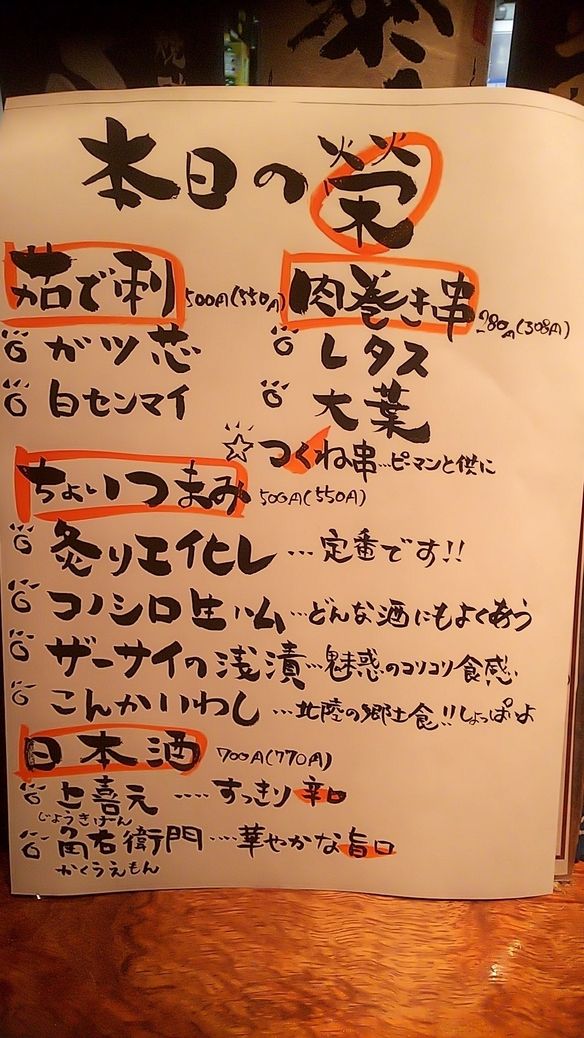 本日の榮
茹で刺 500円(550円)
ガツ芯
白センマイ
肉巻き串 280円(308円)
レタス
大葉
☆つくね串…ピーマンと供に
ちょいつまみ 500円(550円)
炙りエイヒレ…定番です!!
コノシロ生ハム…どんな酒にもよくあう
ザーサイの浅漬…魅惑のコリコリ食感
こんかいわし…北陸の郷土食!!しょっぱいよ
日本酒 700円(770円)
上喜元……すっきり辛口
じょうきげん
角右衛門……華やかな旨口
かくうえもん